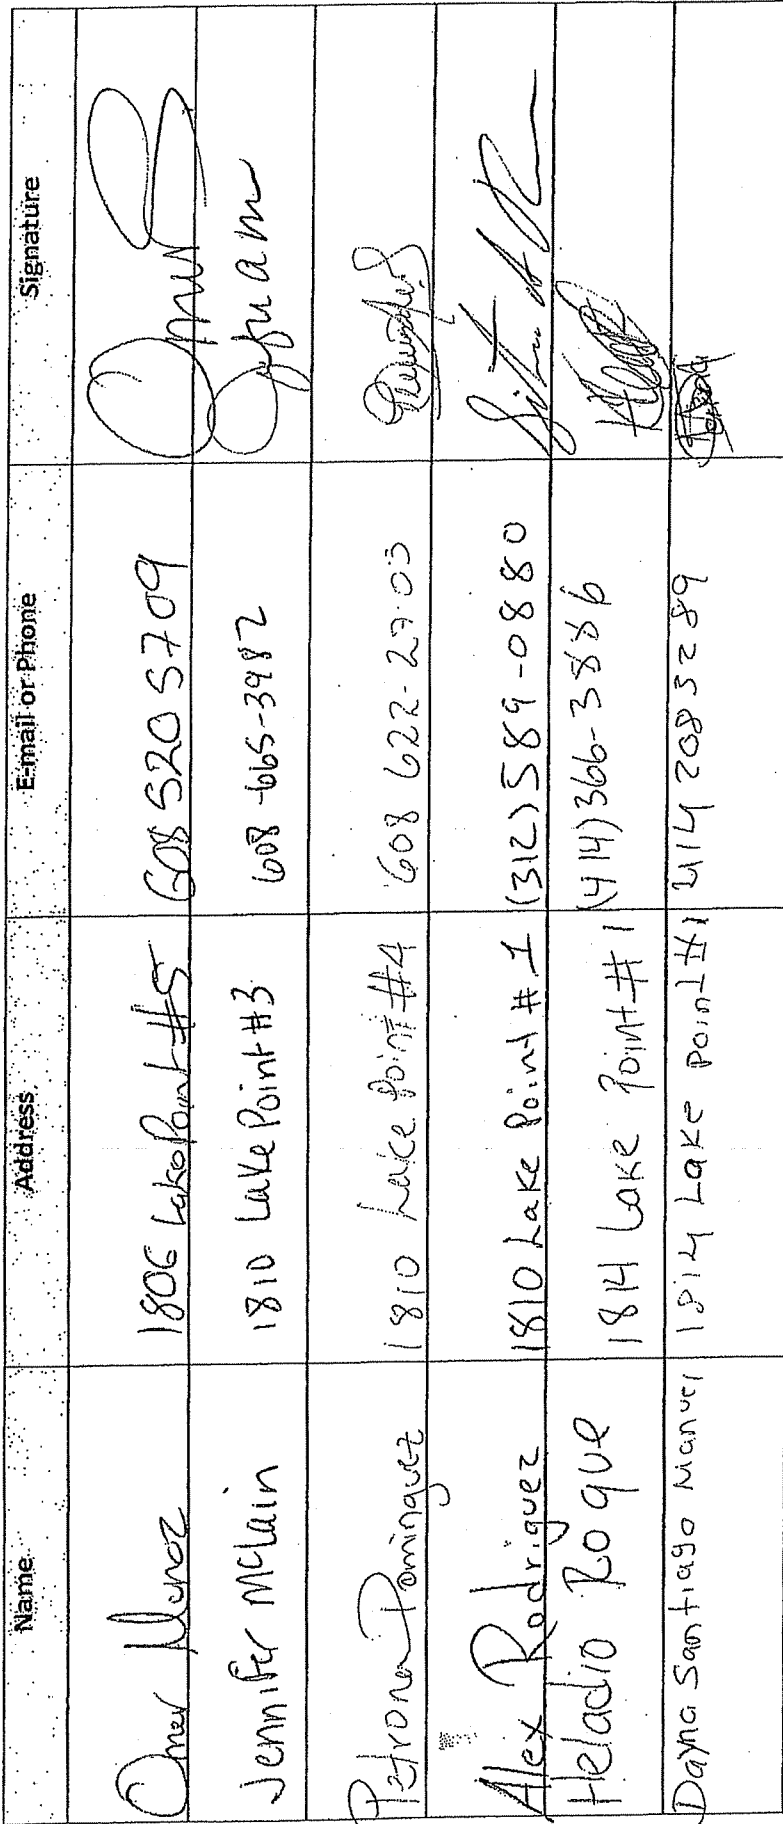 Name Address E-mail or Phone Signature
Omar Munoz 1806 Lake Point #5 608 520 5709
Jennifer McLain 1810 Lake Point #3 608-665-3982
Petrona Dominguez 1810 Lake Point #4 608 622-27-03
Alex Rodriguez 1810 Lake Point #1 (312) 589-0880
Heladio Roque 1814 Lake Point #1 (414) 366-3886
Dayna Santiago Manuel 1814 Lake Point #1 414 208 3289